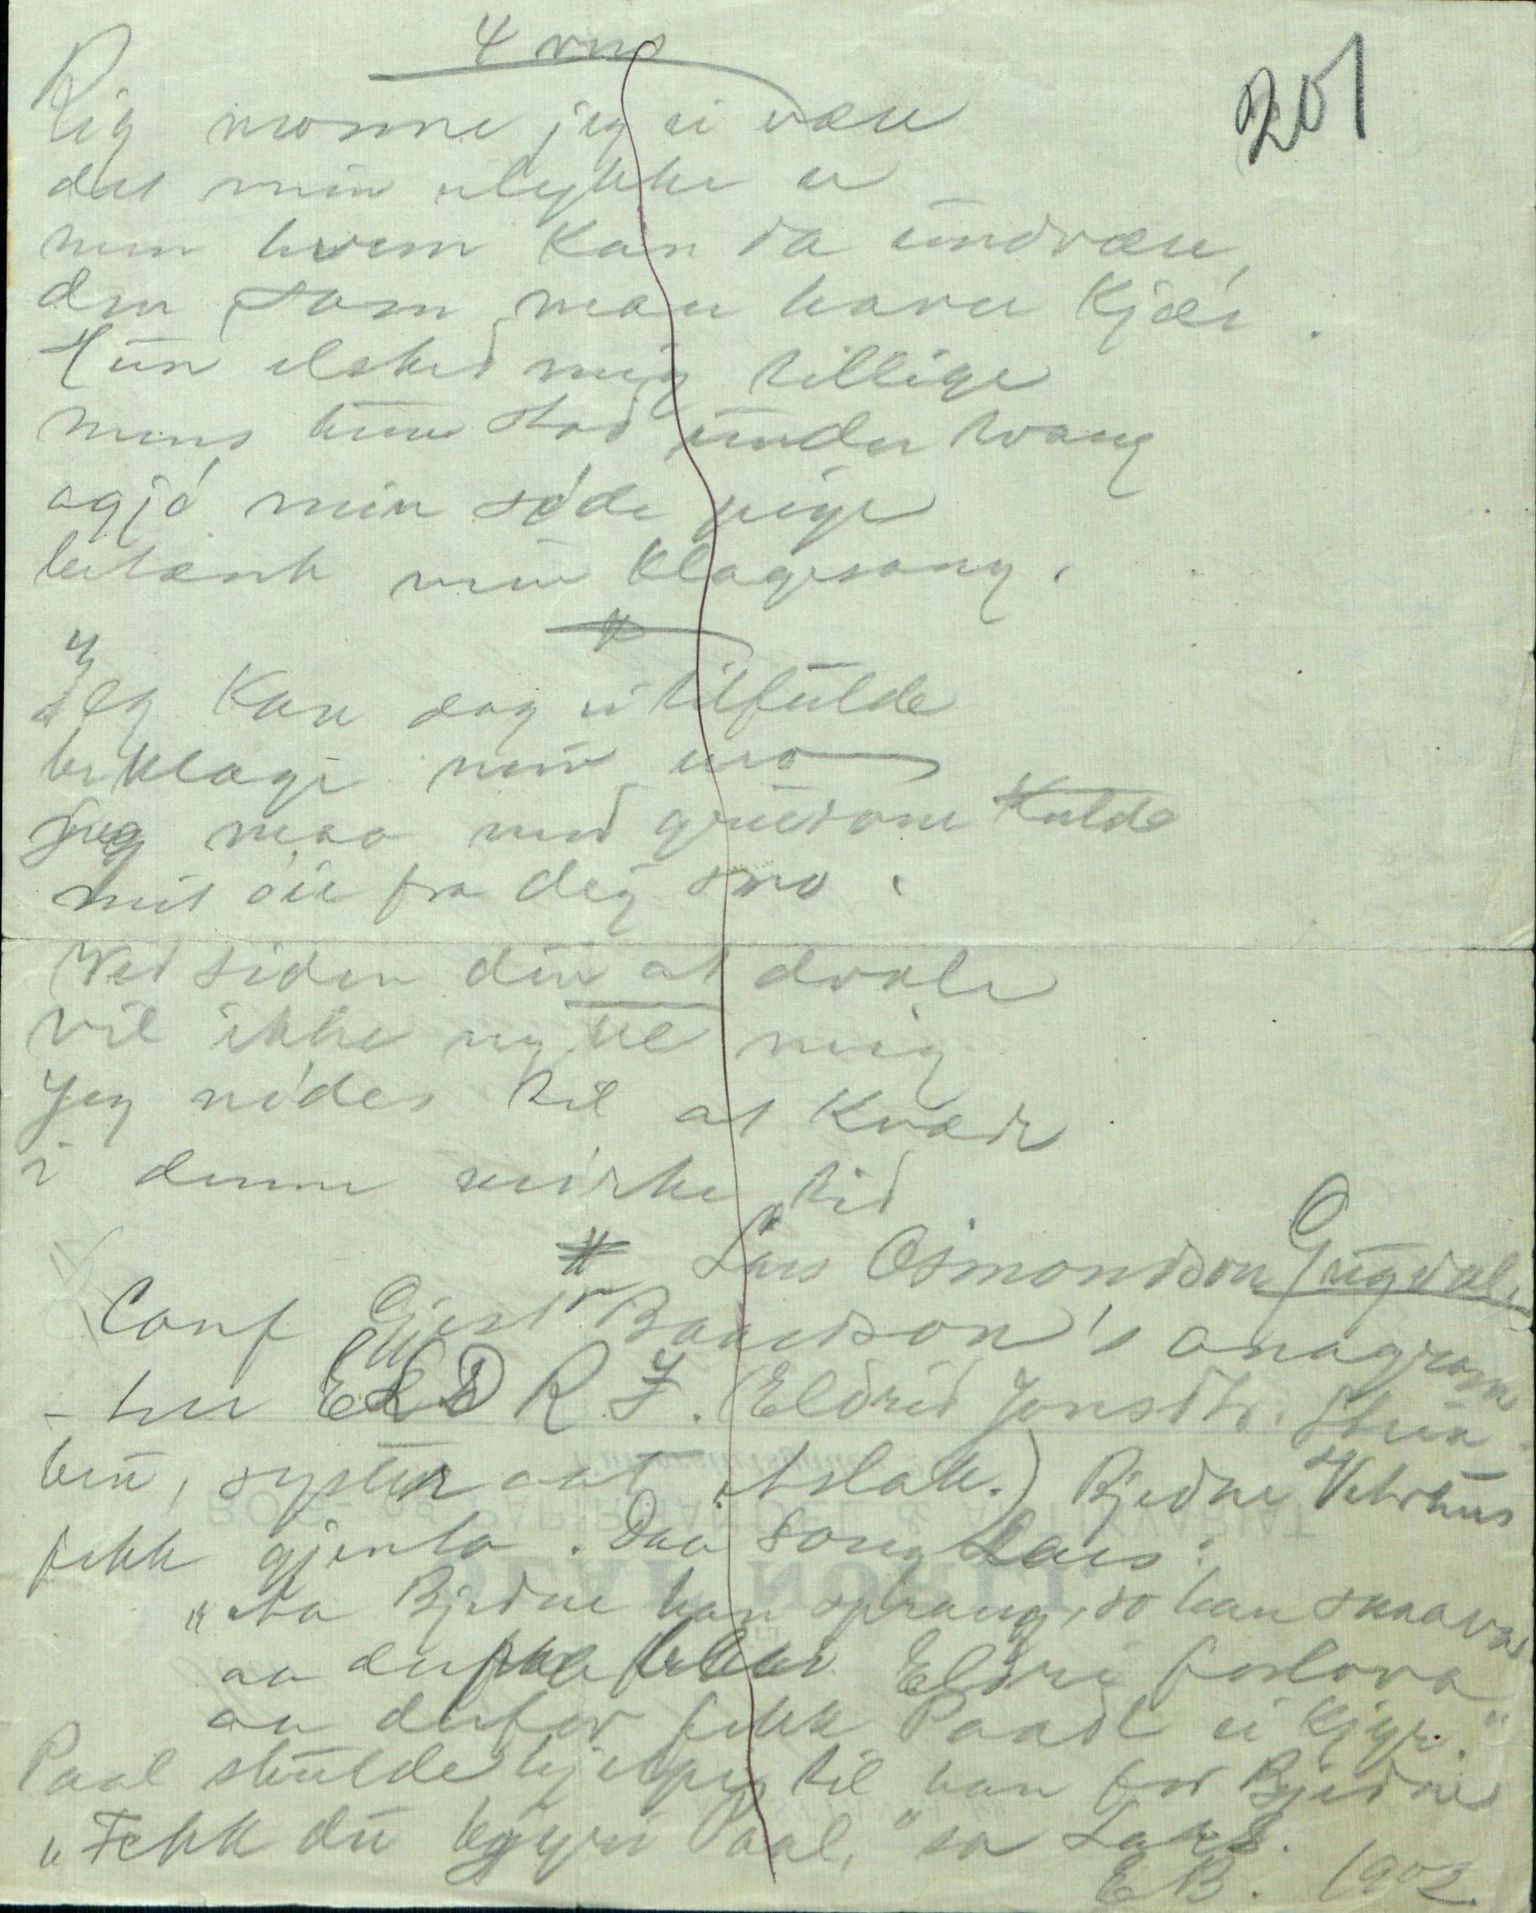 4 vers
201
Rig monne jeg ei være
det min ulykke er
men hvem kan da undvære,
den som man haver kjær.
Hun elsked mig tillige
mens hun stod under tvang
og jó min søde pige
betænk min klagesang.
Jeg kan dog ei tilfulde
beklage min uro
jeg maa med grüsom kulde
mit öie fra deg sno.
Ved siden din at dvale
vil ikke ny til mig
Jeg nödes til at kvæde
i denne mörke tid
Lars Osmondson Gugdal
Conf Gjest Baardson's anagram
- her ELD R J. (Eldrid Jonsdtr. Stein-
bru, syster aat Aslak.) Bjedne Vetrhus
fekk gjenta. Daa song Lars:
"Aa Bjedne han sprang, so han snaava
aa derfor fekk Eldri forlova
aa derfor fekk Paal ei kjyr."
Paal skulde hjelpe til han for Bjedne
"Fekk du kjyri Paal," sa Lars.
EB. 1902